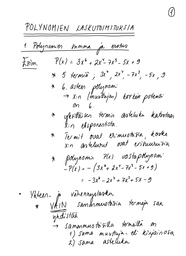 1
POLYNOMIEN LASKUTOIMITUKSIA
1 Polynomien summa ja erotus
Esim P(x) = 3x⁶ + 2x⁴ - 7x³ - 5x + 9
* 5 termiä; 3x⁶, 2x⁴, -7x³, -5x, 9
* 6. asteen polynomi
→ x:n (muuttujan) korkein potenssi
on 6.
* yksittäisen termin asteluku katsotaan
x:n eksponentista
* Termit ovat erimuotoisia, koska
x:n asteluvut ovat erisuuruisia
* polynomin P(x) vastapolynomi
-P(x) = -(3x⁶ + 2x⁴ - 7x³ - 5x + 9)
= -3x⁶ - 2x⁴ + 7x³ + 5x - 9
• Yhteen- ja vähennyslasku
* VAIN samanmuotoisia termejä saa
yhdistää
→ samanmuotoisilla termeillä on
1) sama muuttuja eli kirjainosa
2) sama asteluku